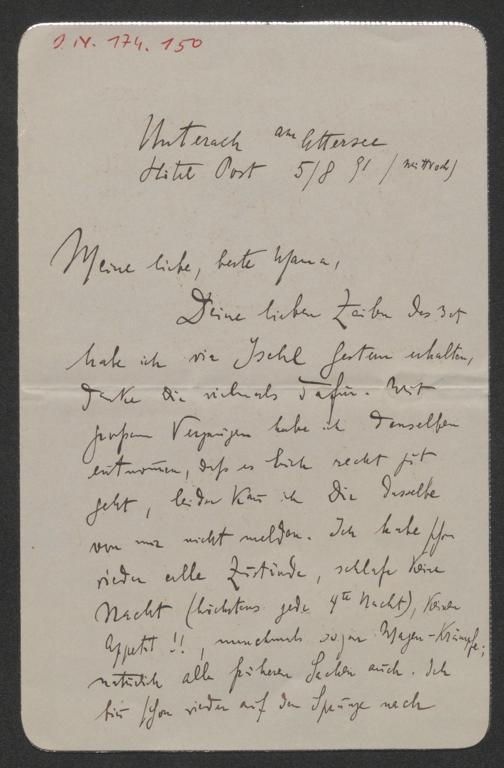 J. N. 174.150
Unterach am Attersee
Hôtel Post 5/8 91 /Mittwoch/
Meine liebe, beste Mama,
Deine lieben Zeilen des 3ot
habe ich via Ischl gestern erhalten,
danke Dir vielmals dafür. Mit
großem Vergnügen habe ich denselben
entnommen, daß es Euch recht gut
geht, leider kann ich Dir dasselbe
von mir nicht melden. Ich habe schon
wieder alle Zustände, schlafe keine
Nacht (höchstens jede 4te Nacht), keinen
Appetit!!, manchmal sogar Magen-Krämpfe;
natürlich alle früheren Sachen auch. Ich
bin schon wieder auf dem Sprunge nach